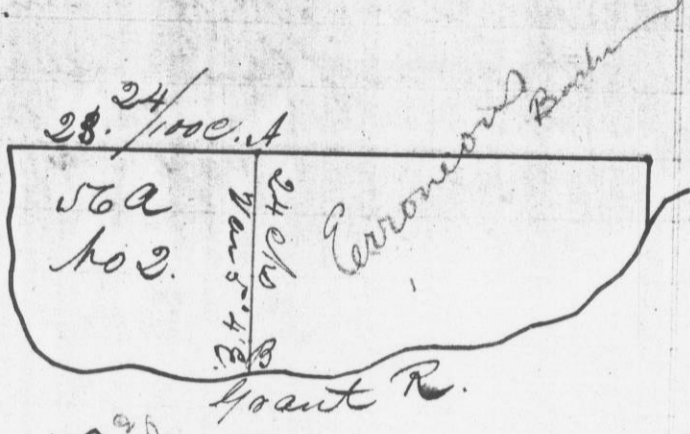 28. 24/100 C. A
56 a
No 2.
24 C
Var 5° 4' E.
B
Erroneous
Grant R.